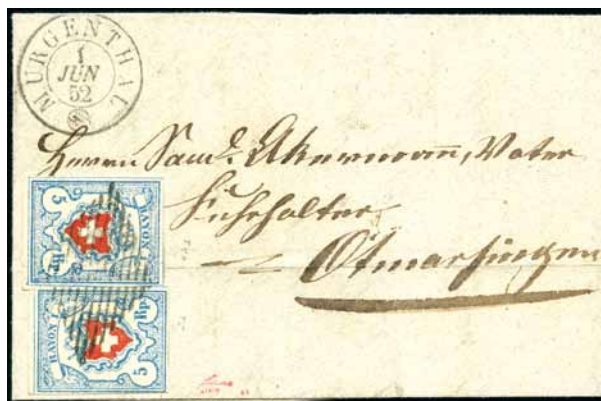 MURGENTHAL
1
JUN
52
Herrn Saml. Akermann, Vater
Fuhrhalter
Otmarsingen
5
RAYON I
Rp.
RAYON I
5
Rp.